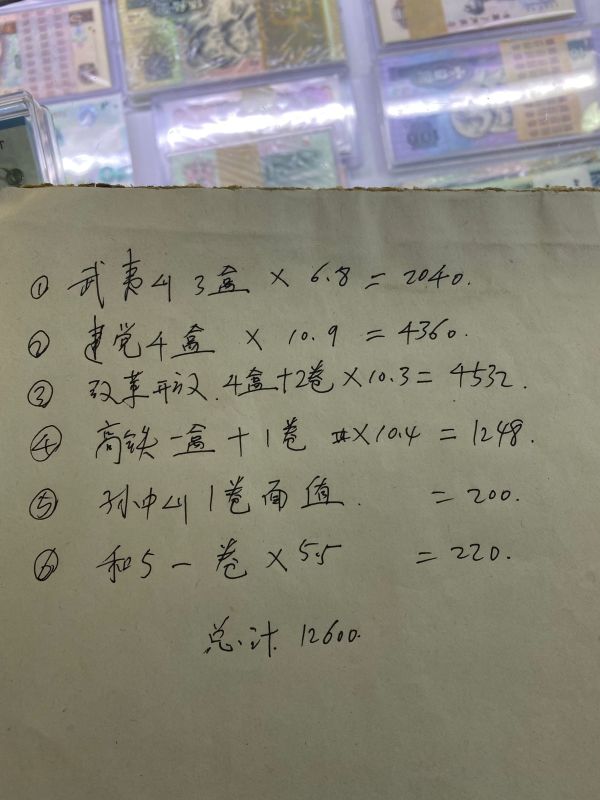 ① 武夷山3盒 × 6.8 = 2040.
② 建党4盒 × 10.9 = 4360.
③ 改革开放.4盒+2卷×10.3= 4532.
④ 高铁一盒+1卷 ×10.4 = 1248.
⑤ 孙中山1卷面值. = 200.
⑥ 和5一卷×5.5 = 220.
总计 12600.
100